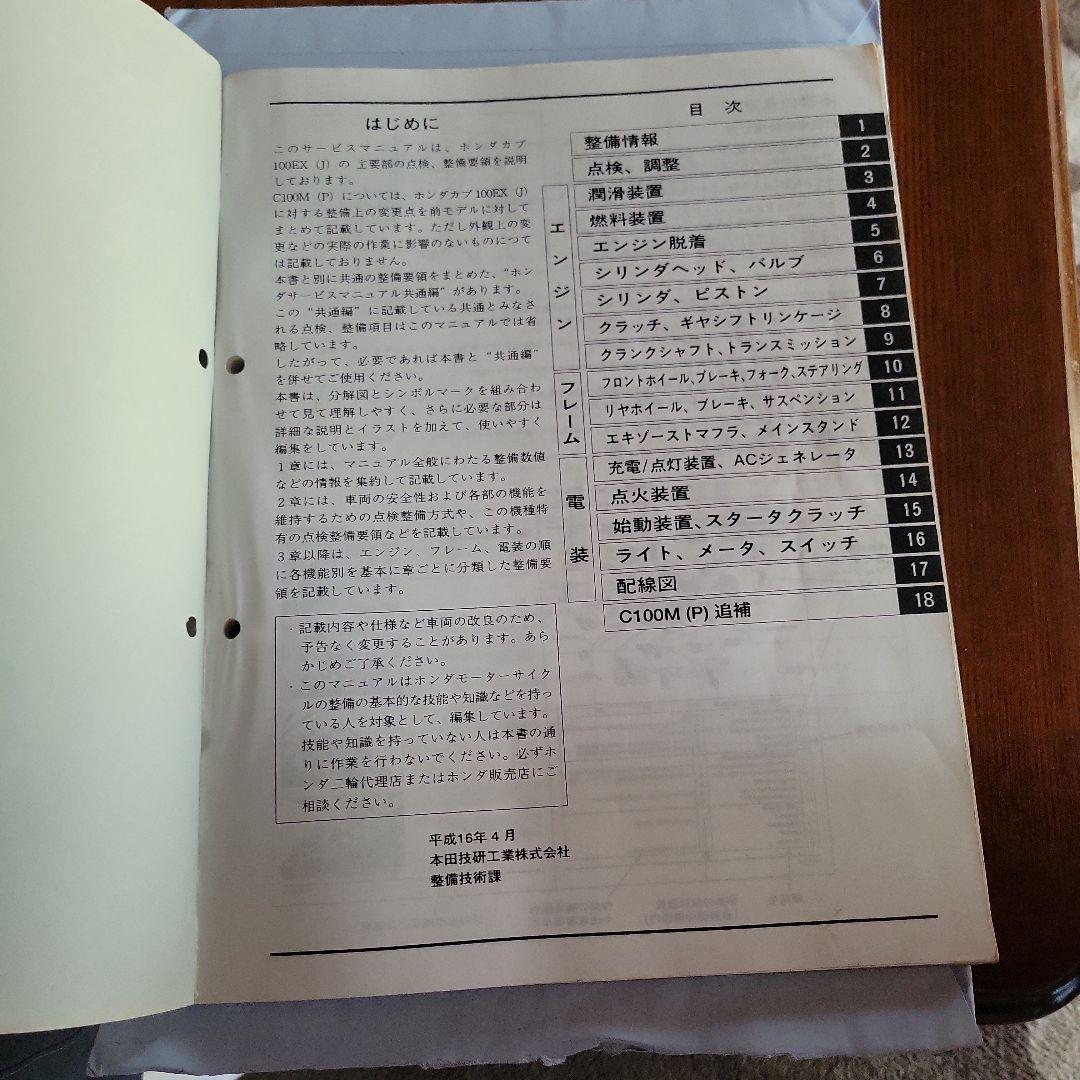 はじめに
このサービスマニュアルは、ホンダカブ
100EX (J) の 主要部の点検、整備要領を説明
しております。
C100M (P) については、ホンダカブ100EX (J)
に対する整備上の変更点を前モデルに対して
まとめて記載しています。ただし外観上の変
更などの実際の作業に影響のないものについて
は記載しておりません。
本書と別に共通の整備要領をまとめた、“ホン
ダサービスマニュアル共通編”があります。
この“共通編”に記載している共通とみなさ
れる点検、整備項目はこのマニュアルでは省
略しています。
したがって、必要であれば本書と“共通編”
を併せてご使用ください。
本書は、分解図とシンボルマークを組み合わ
せて見て理解しやすく、さらに必要な部分は
詳細な説明とイラストを加えて、使いやすく
編集をしています。
1章には、マニュアル全般にわたる整備数値
などの情報を集約して記載しています。
2章には、車両の安全性および各部の機能を
維持するための点検整備方式や、この機種特
有の点検整備要領などを記載しています。
3章以降は、エンジン、フレーム、電装の順
に各機能別を基本に章ごとに分類した整備要
領を記載しています。
・記載内容や仕様など車両の改良のため、
予告なく変更することがあります。あら
かじめご了承ください。
・このマニュアルはホンダモーターサイク
ルの整備の基本的な技能や知識などを持っ
ている人を対象として、編集しています。
技能や知識を持っていない人は本書の通
りに作業を行わないでください。必ずホ
ンダ二輪代理店またはホンダ販売店にご
相談ください。
平成16年4月
本田技研工業株式会社
整備技術課
目 次
整備情報 1
点検、調整 2
エンジン
潤滑装置 3
燃料装置 4
エンジン脱着 5
シリンダヘッド、バルブ 6
シリンダ、ピストン 7
クラッチ、ギヤシフトリンケージ 8
クランクシャフト、トランスミッション 9
フレーム
フロントホイール、ブレーキ、フォーク、ステアリング 10
リヤホイール、ブレーキ、サスペンション 11
エキゾーストマフラ、メインスタンド 12
電装
充電/点灯装置、ACジェネレータ 13
点火装置 14
始動装置、スタータクラッチ 15
ライト、メータ、スイッチ 16
配線図 17
C100M (P) 追補 18